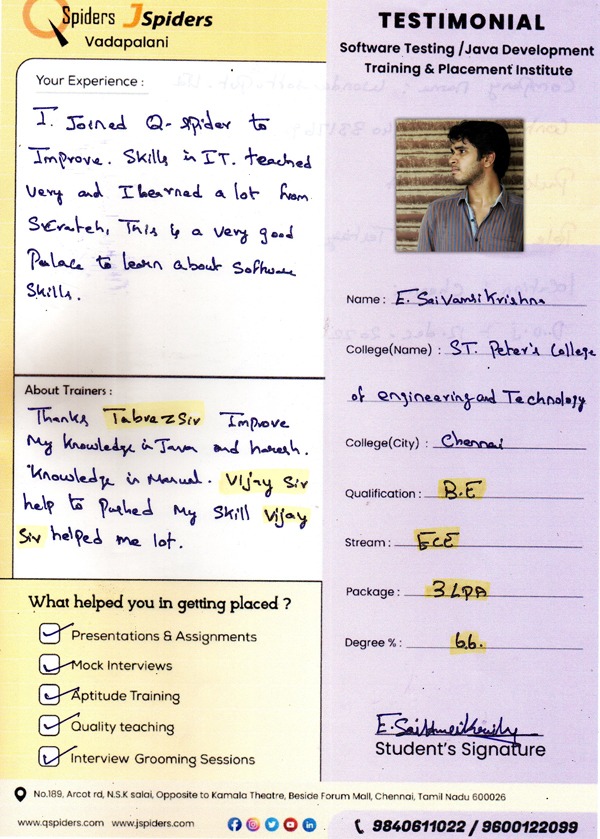 QSpiders JSpiders
Vadapalani
Your Experience :
I. Joined Q-spider to
Improve. Skills in IT. teached
very and I learned a lot from
Scratch, This is a very good
Palace to learn about Software
Skills.
About Trainers :
Thanks Tabrez Sir Improve
My knowledge in Java and haresh.
Knowledge in Manual. Vijay Sir
help to Pushed My Skill Vijay
Sir helped me lot.
What helped you in getting placed ?
Presentations & Assignments
Mock Interviews
Aptitude Training
Quality teaching
Interview Grooming Sessions
TESTIMONIAL
Software Testing /Java Development
Training & Placement Institute
Name : E. Sai Vamsi Krishna
College(Name) : ST. Peter's College
of engineering and Technology
College(City) : Chennai
Qualification : B.E
Stream : ECE
Package : 3 LPA
Degree % : 66.
Student's Signature
No.189, Arcot rd, N.S.K salai, Opposite to Kamala Theatre, Beside Forum Mall, Chennai, Tamil Nadu 600026
www.qspiders.com www.jspiders.com
9840611022 / 9600122099